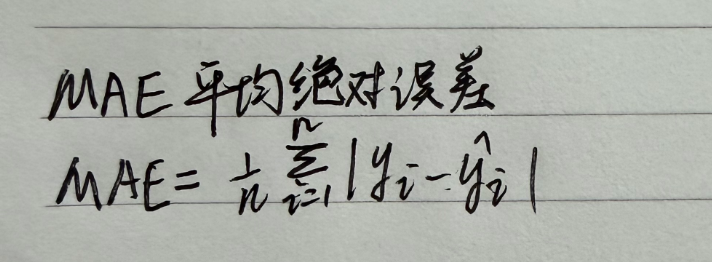 MAE 平均绝对误差
MAE = \frac{1}{n} \sum_{i=1}^{n} |y_i - \hat{y}_i|